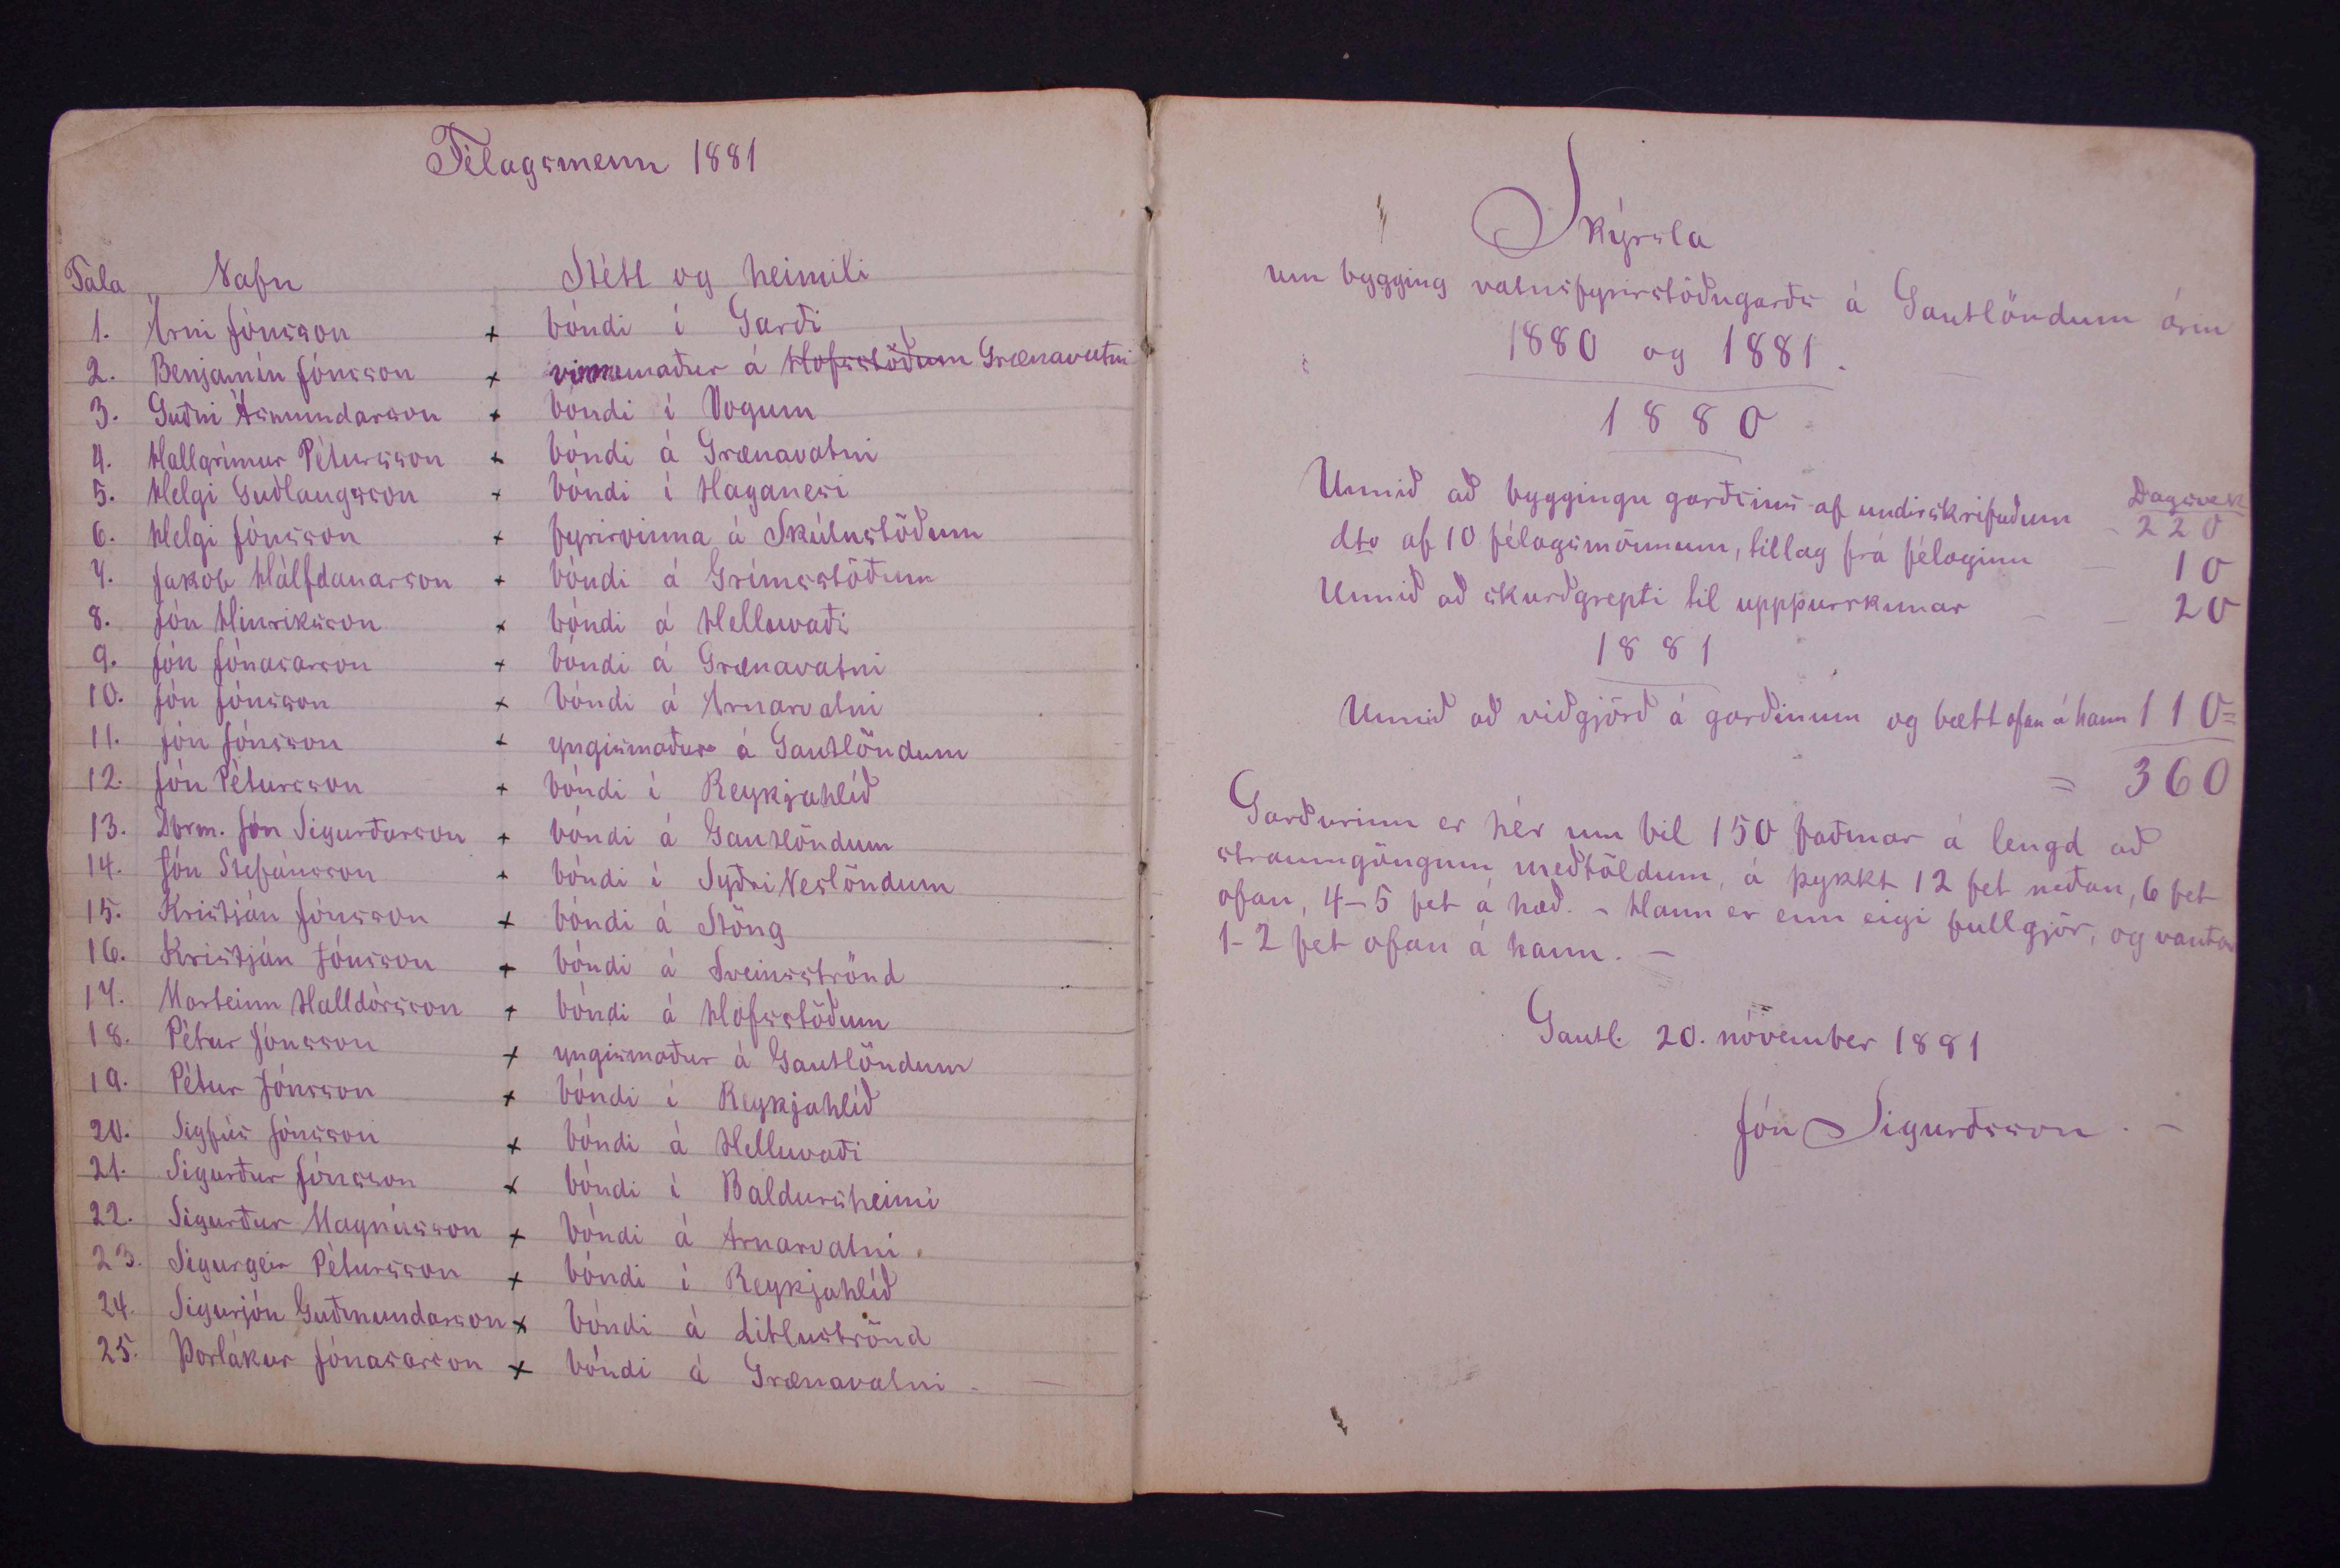 Félagsmenn 1881
Tala Nafn Stétt og heimili
1. Árni Jónsson + bóndi í Garði
2. Benjamín Jónsson + vinnumaður á Hofsstöðum Grænavatni
3. Guðni Ásmundarson + bóndi í Vogum
4. Hallgrímur Pétursson + bóndi á Grænavatni
5. Helgi Guðlaugsson + bóndi í Haganesi
6. Helgi Jónsson + fyrirvinna á Skútustöðum
7. Jakob Hálfdanarson + bóndi á Grímsstöðum
8. Jón Hinriksson + bóndi á Helluvaði
9. Jón Jónasarson + bóndi á Grænavatni
10. Jón Jónsson + bóndi á Arnarvatni
11. Jón Jónsson + yngismaður á Gautlöndum
12. Jón Pétursson + bóndi í Reykjahlíð
13. Dbrm. Jón Sigurðarson + bóndi á Gautlöndum
14. Jón Stefánsson + bóndi í Syðri Neslöndum
15. Kristján Jónsson + bóndi á Stöng
16. Kristján Jónsson + bóndi á Sveinsströnd
17. Marteinn Halldórsson + bóndi á Hofsstöðum
18. Pétur Jónsson + yngismaður á Gautlöndum
19. Pétur Jónsson + bóndi í Reykjahlíð
20. Sigfús Jónsson + bóndi á Helluvaði
21. Sigurður Jónsson + bóndi í Baldursheimi
22. Sigurður Magnússon + bóndi á Arnarvatni.
23. Sigurgeir Pétursson + bóndi í Reykjahlíð
24. Sigurjón Guðmundarson + bóndi á Litluströnd
25. Þorlákur Jónasarson + bóndi á Grænavatni. —
Skýrsla
um bygging vatnsfyrirstöðugarðs á Gautlöndum árin
1880 og 1881.
1880
Dagsverk
Unnið að byggingu garðsins af undirskrifuðum - 220
dto af 10 félagsmönnum, tillag frá félaginu — 10
Unnið að skurðgrepti til uppþurrkunar - - 20
1881
Unnið að viðgjörð á garðinum og bætt ofan á hann 110=
= 360
Garðurinn er hér um bil 150 faðmar á lengd að
straumgöngum meðtöldum, á þykkt 12 fet neðan, 6 fet
ofan, 4-5 fet á hæð. - Hann er enn eigi fullgjör, og vantar
1-2 fet ofan á hann. —
Gautl. 20. nóvember 1881
Jón Sigurðsson. —